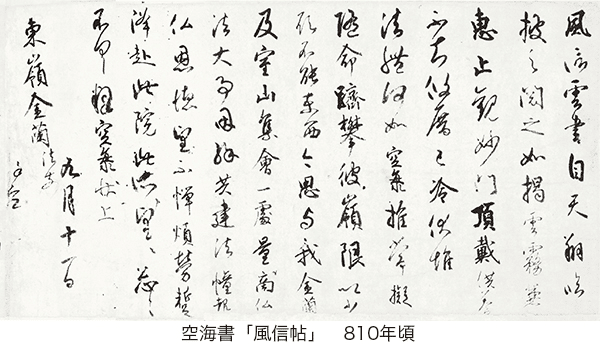 風信雲書自天翔臨
披之閲之如揭雲霧兼
恵止観妙門頂戴供養
不知攸厝已冷伏惟
法躰何如空海推常擬
随命躋攀彼嶺限以少
願不能東西今思与我金蘭
及室山集會一處量商仏
法大事因縁共建法幢報
仏恩徳望不憚煩労蹔
降赴此院此所望々忩々
不具釋空海状上
九月十一日
東嶺金蘭法前
謹空
空海書「風信帖」　810年頃